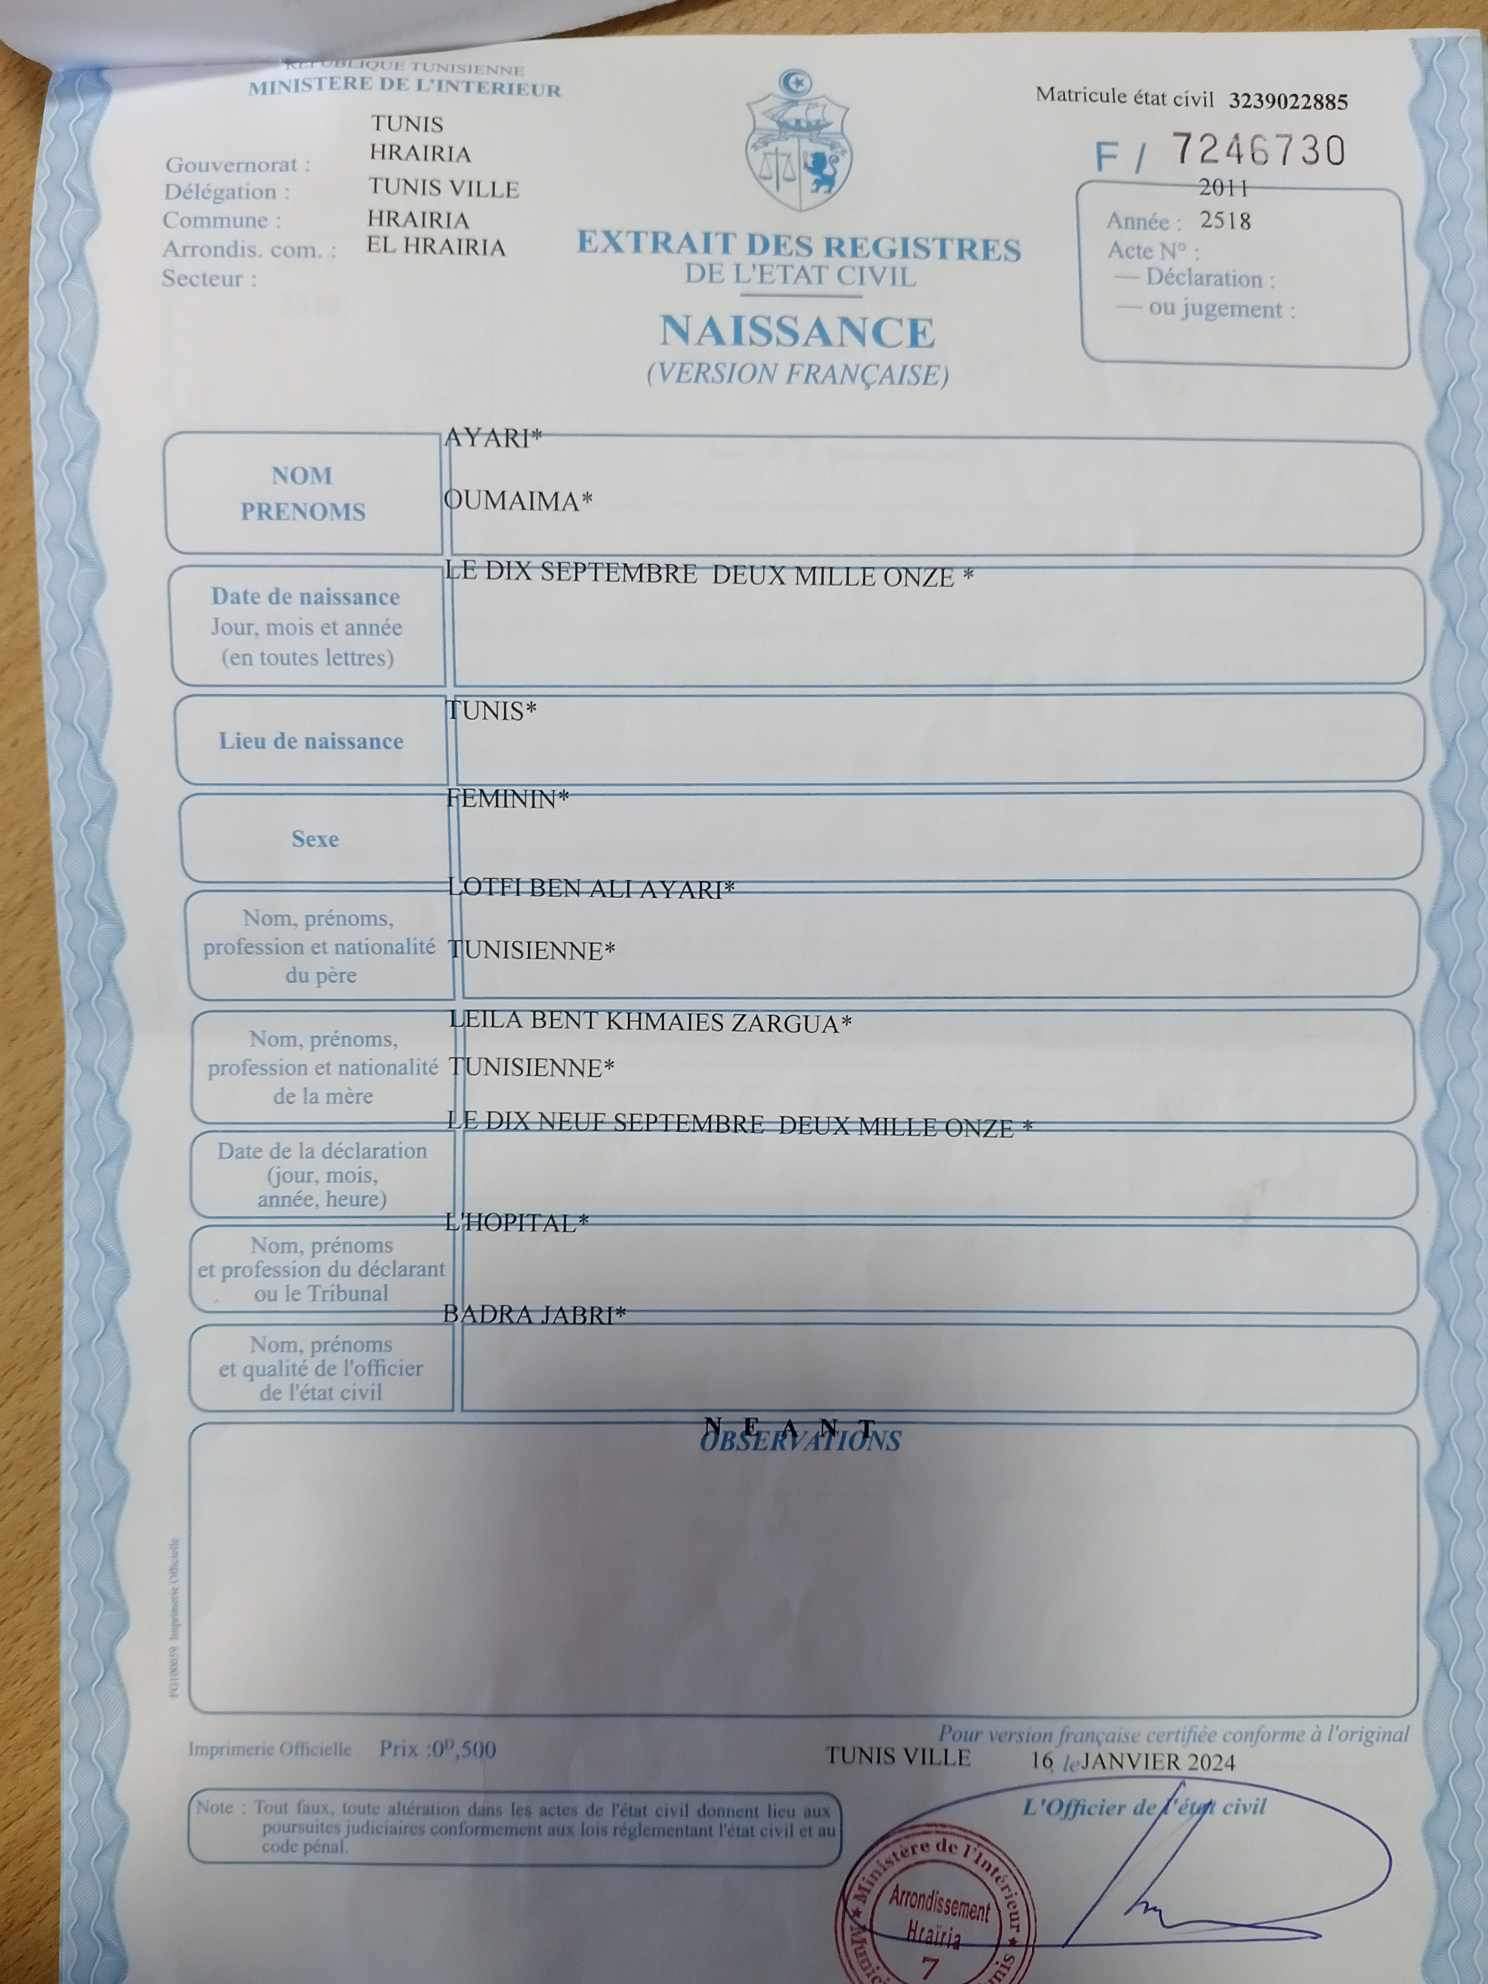 REPUBLIQUE TUNISIENNE
MINISTERE DE L'INTERIEUR
Gouvernorat : TUNIS
Délégation : HRAIRIA
Commune : TUNIS VILLE
Arrondis. com. : HRAIRIA
Secteur : EL HRAIRIA
Matricule état civil 3239022885
F / 7246730
2011
Année : 2518
Acte N° :
— Déclaration :
— ou jugement :
EXTRAIT DES REGISTRES
DE L'ETAT CIVIL
NAISSANCE
(VERSION FRANÇAISE)
NOM
PRENOMS
AYARI*
OUMAIMA*
Date de naissance
Jour, mois et année
(en toutes lettres)
LE DIX SEPTEMBRE DEUX MILLE ONZE *
Lieu de naissance
TUNIS*
Sexe
FEMININ*
Nom, prénoms,
profession et nationalité
du père
LOTFI BEN ALI AYARI*
TUNISIENNE*
Nom, prénoms,
profession et nationalité
de la mère
LEILA BENT KHMAIES ZARGUA*
TUNISIENNE*
Date de la déclaration
(jour, mois,
année, heure)
LE DIX NEUF SEPTEMBRE DEUX MILLE ONZE *
Nom, prénoms
et profession du déclarant
ou le Tribunal
L'HOPITAL*
Nom, prénoms
et qualité de l'officier
de l'état civil
BADRA JABRI*
N E A N T
OBSERVATIONS
Imprimerie Officielle
Imprimerie Officielle Prix :0ᴰ,500
Pour version française certifiée conforme à l'original
TUNIS VILLE 16 le JANVIER 2024
L'Officier de l'état civil
Note : Tout faux, toute altération dans les actes de l'état civil donnent lieu aux
poursuites judiciaires conformement aux lois réglementant l'état civil et au
code pénal.
Ministère de l'Intérieur
Arrondissement
Hraïria
7